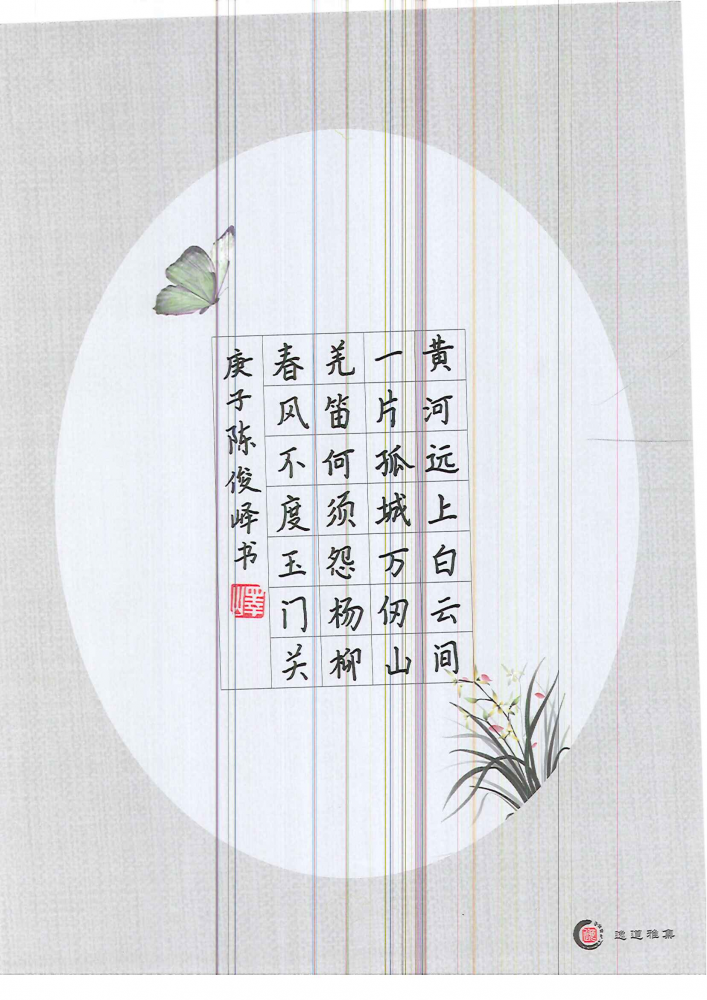 黄河远上白云间
一片孤城万仞山
羌笛何须怨杨柳
春风不度玉门关
庚子陈俊峄书
峄
逸道雅集